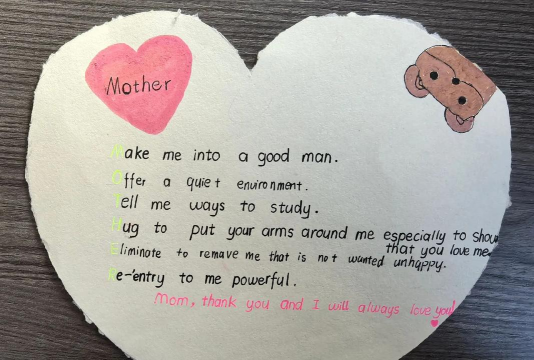 Mother
Make me into a good man.
Offer a quiet environment.
Tell me ways to study.
Hug to put your arms around me especially to show
that you love me.
Eliminate to remave me that is not wanted unhappy.
Re-entry to me powerful.
Mom, thank you and I will always love you!